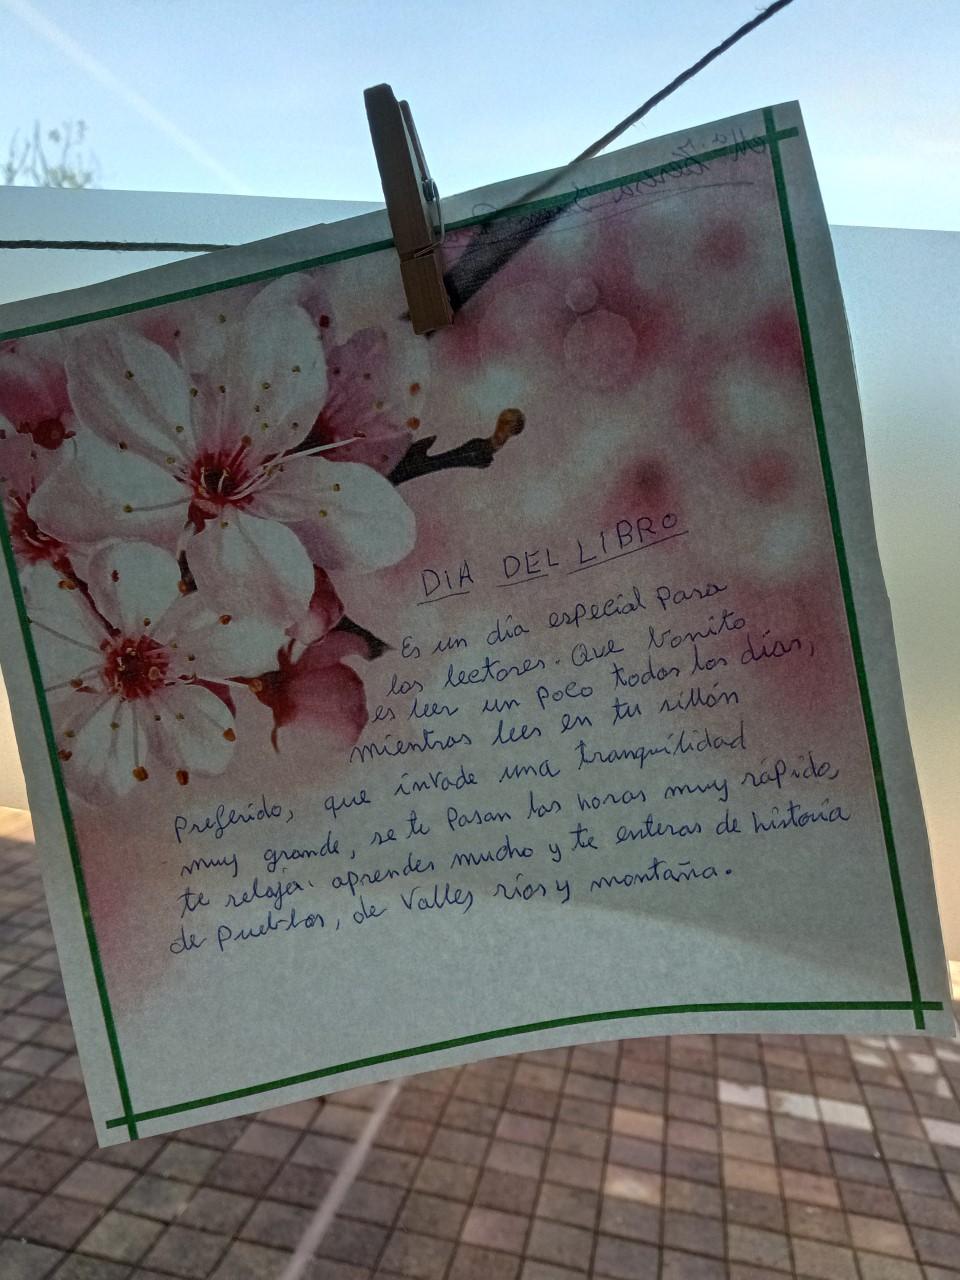 DIA DEL LIBRO
Es un día especial para
los lectores. Que bonito
es leer un poco todos los días,
mientras lees en tu sillón
preferido, que invade una tranquilidad
muy grande, se te pasan las horas muy rápido,
te relaja. aprendes mucho y te enteras de historia
de Pueblos, de Valles ríos y montaña.